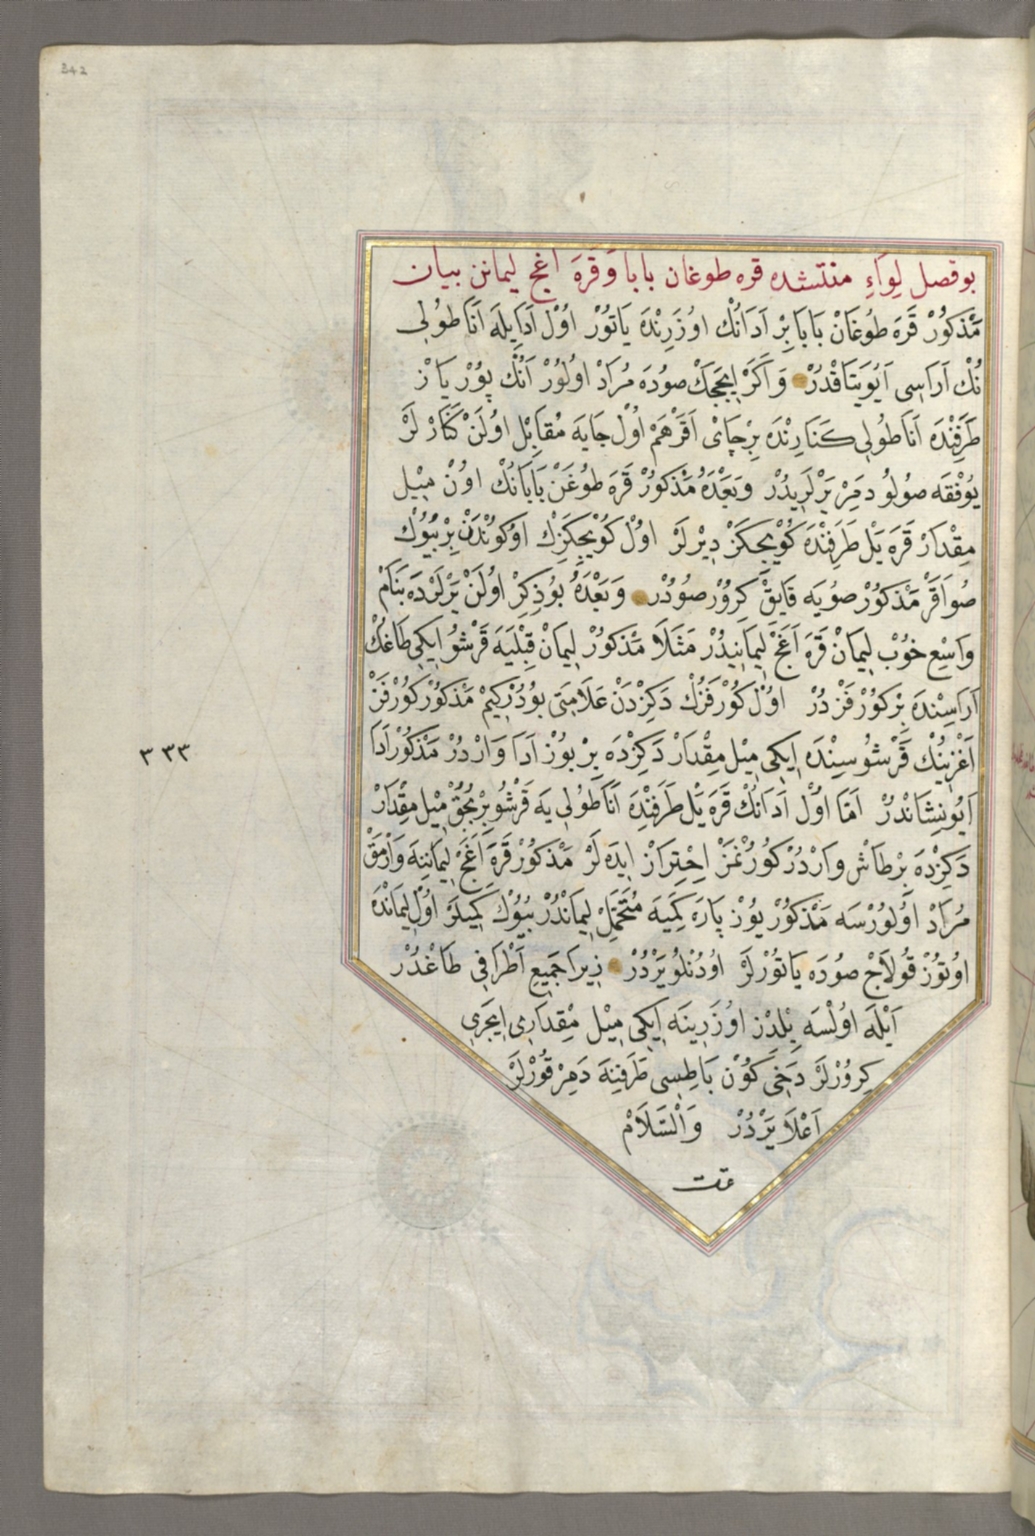 342
بو فصل لِواءِ منتشده قره طوغان بابا و قَرَه اغج ليمانن بيان
مَذكُورْ قَرَه طُوغَانْ بَابَا بِرْ اَدَانُكْ اوُزَرِنْدَه يَاتُورْ اوُلْ اَدَايِلَه اَنَا طُولِى
نُكْ اَرَاسِى اَيُويَتَاقْدُرْ وَ اَكَرْ اِيچَجَكْ صُودَه مُرَادْ اوُلُورْ اَنُكْ پُوُرْ يَازْ
طَرَفِنْدَه اَنَا طُولِى كَنَارِنْدَه بِرْ چَاىْ اَقَرْ هَمْ اوُلْ جَايَه مُقَابِلْ اوُلَنْ كَنَارْ لَرْ
يُوُفْقَه صُولُو دَمِرْ يَرْ لَرِيدُرْ وَبَعْدَهُ مَذْكُورْ قَرَه طُوغَنْ بَابَانُكْ اوُنْ مِيْل
مِقْدَارْ قَرَه يَلْ طَرَفِنْدَه كُوْيِجِكَزْ دِيْرلَرْ اوُلْ كُوْيِجِكَزِكْ اوُكُونْدَنْ بِرْ بُيُوكْ
صُو اَقَرْ مَذكُورْ صُويَه قَايِقْ كِرُوُرْ صُودُرْ وَبَعْدَهُ بُوذِكِرْ اوُلَنْ يَرْلَرْدَه بَنَامْ
وَاسِعِ خُوبْ لِيمَانْ قَرَه اَغَجْ لِيمَانِيدُرْ مَثَلَا مَذكُورْ لِيمَانْ قِبْلَيَه قَرْشُو اِيكِى طَاغُكْ
اَرَاسِنْدَه بِرْ كُورْفَزْ دُرْ اوُلْ كُورْفَزُكْ دَكِزْدَنْ عَلَامَتِى بُودُرْكِيمْ مَذكُورْ كُورْفَزْ
اَغْزِيِنُكْ قَرْشُوسِنْدَه اِيكِى مِيْل مِقْدَارْ دَكِزْدَه بِرْ بُوزْ اَدَا وَارْدُرْ مَذْكُورْ اَدَا
اَيُو نِشَانْدُرْ اَمَّا اوُلْ اَدَانُكْ قَرَه يَلْ طَرَفِنْدَه اَنَا طُولِى يَه قَرْشُو بِرْ بُجُقْ مِيْل مِقْدَارْ
دَكِزْدَه بِرْ طَاشْ وَارْدُرْ كُورُنْمَزْ اِحْتِرَازْ ايدَه لَرْ مَذْكُورْ قَرَه اَغَجْ لِيمَانِنَه وَارْمَقْ
مُرَادْ اوُلُورْسَه مَذْكُورْ يُوزْ پَارَه كَمِيَه مُتَحَمِّلْ لِيمَانْدُرْ بُيُوكْ كَمِيلَرْ اوُلْ لِيمَانْدَه
اوُتُوزْ قُولَاجْ صُودَه يَاتُورْلَرْ اوُدُنْلُو يَرْدُرْ زِيرَا جَمِيعِ اَطْرَافِى طَاغْدُرْ
اَيْلَه اوُلْسَه يِلْدِزْ اوُزَرِينَه اِيكِى مِيْل مِقْدَارِى اِيچَرِى
كِرُورْلَرْ دَخِى كُونْ بَاطِسِى طَرَفِنَه دَمِرْ قُورْلَرْ
اَعْلَا يَرْدُرْ وَالسَّلَامْ
تمت
٣٣٣